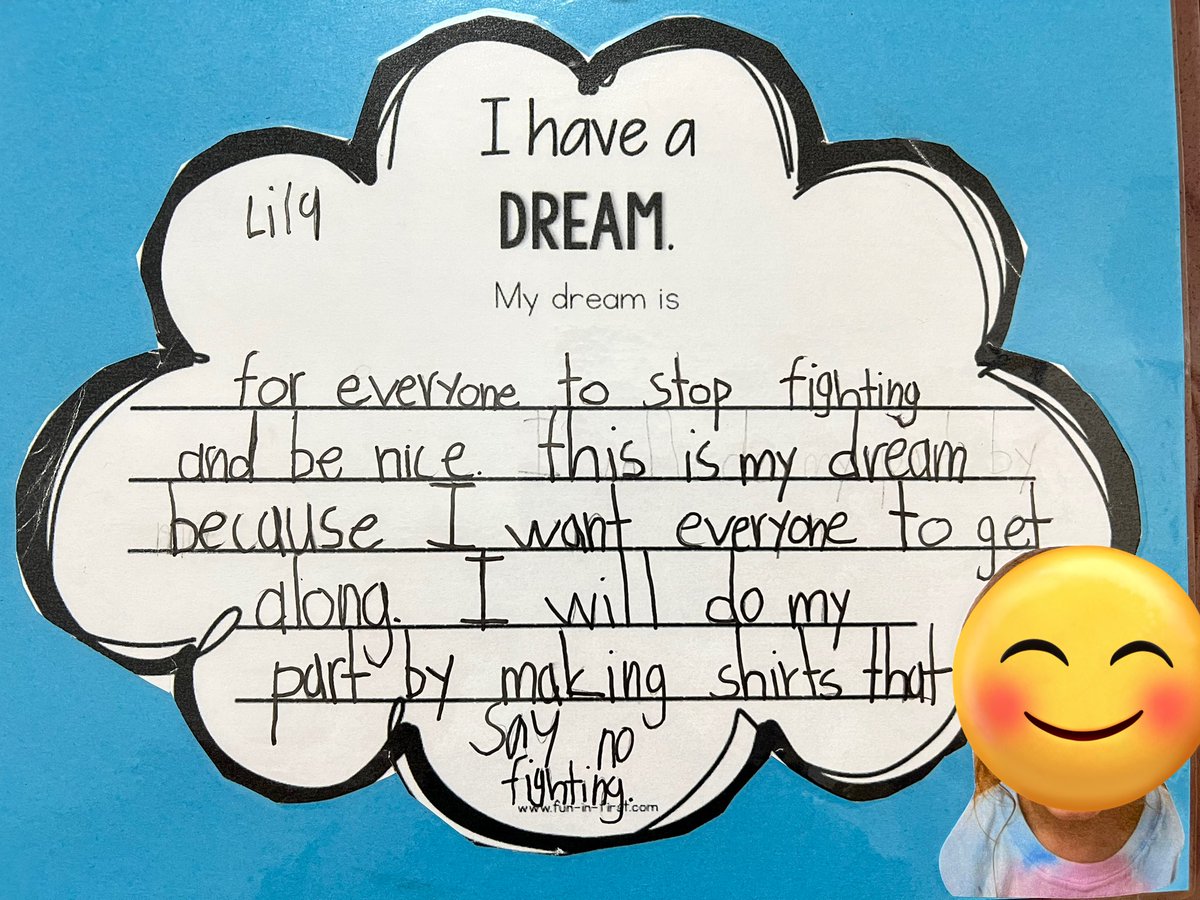 I have a
DREAM.
Lily
My dream is
for everyone to stop fighting
and be nice. this is my dream
because I want everyone to get
along. I will do my
part by making shirts that
say no
fighting.
www.fun-in-first.com